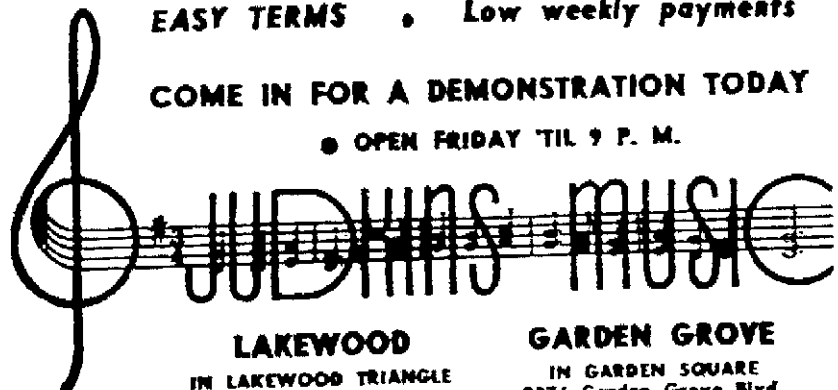 EASY TERMS • Low weekly payments
COME IN FOR A DEMONSTRATION TODAY
• OPEN FRIDAY 'TIL 9 P. M.
JUDKINS MUSIC
LAKEWOOD
IN LAKEWOOD TRIANGLE
GARDEN GROVE
IN GARDEN SQUARE
Garden Grove Blvd.